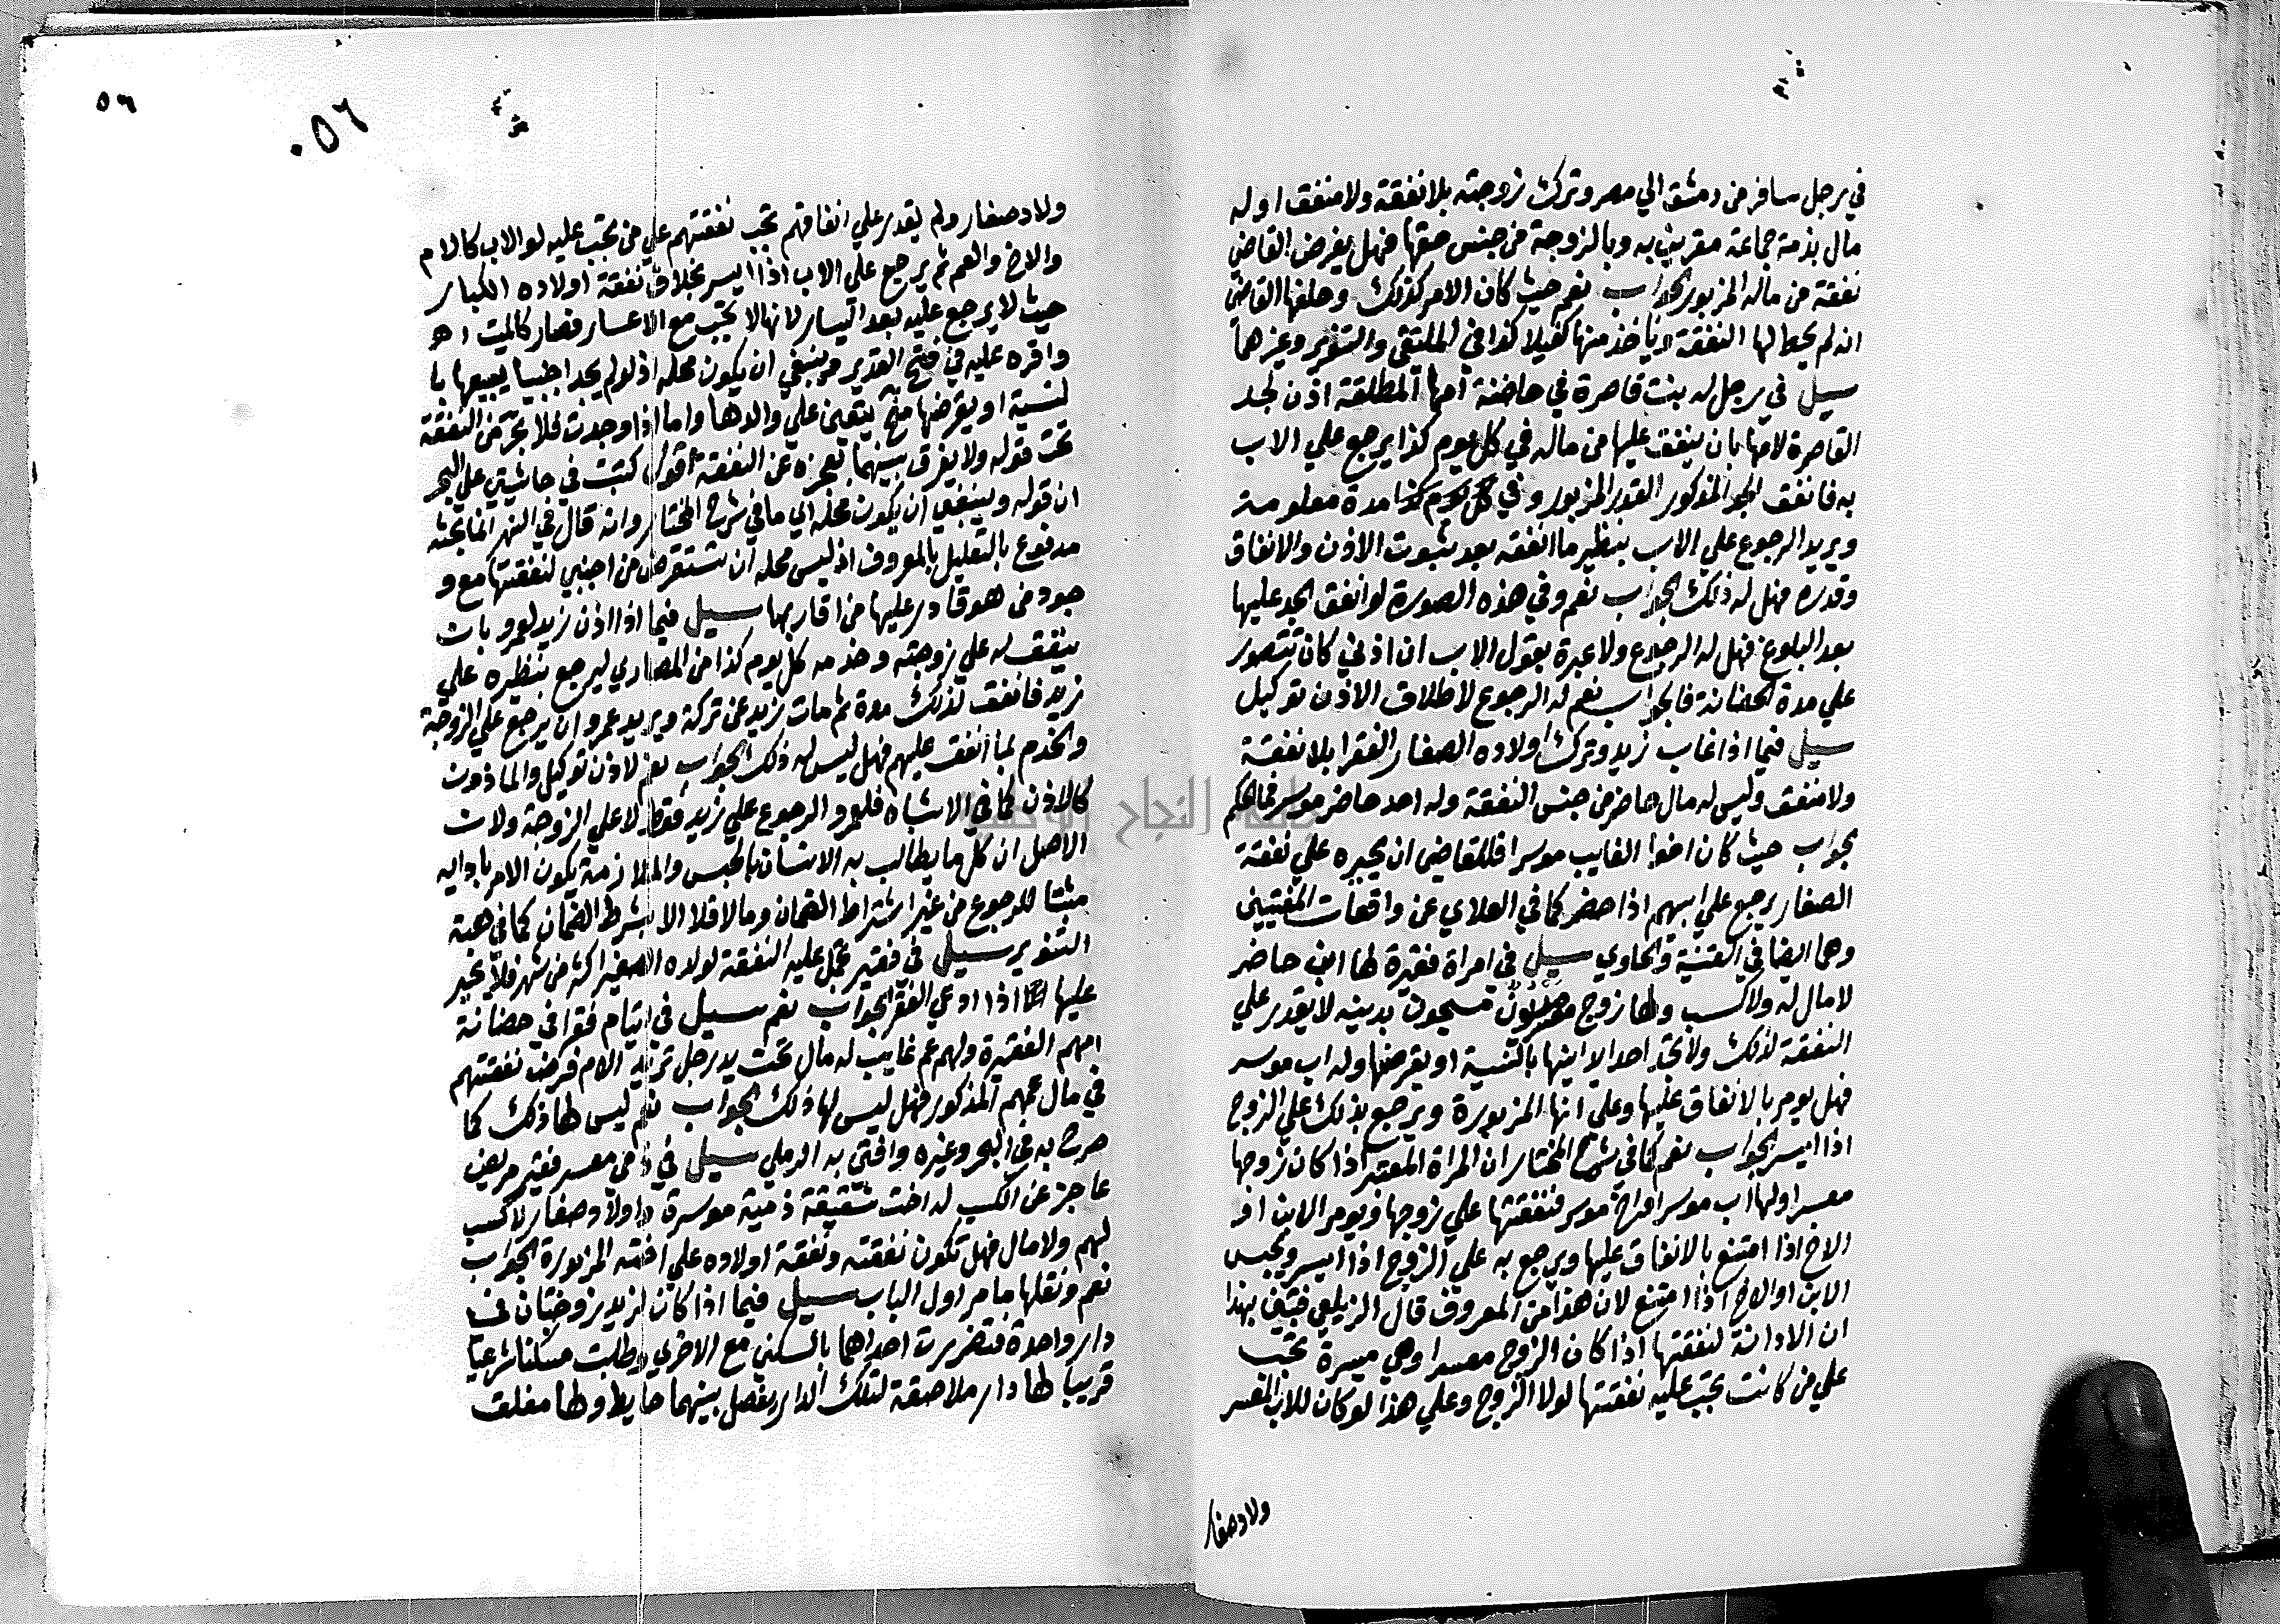 في رجل سافر من دمشق الي مصر وترك زوجته بلا نفقة ولا منفق اوله
مال بذمة جماعة مقرين به وبالزوجة من جنس حقها فهل يفرض القاضي
نفقة من ماله المزبور الجواب نعم حيث كان الامر كذلك وحلفها القاضي
انه لم يعطها النفقة وياخذ منها كفيلا كذا في الملتقي والتنوير وغيرهما
سيل في رجل له بنت قاصرة في حاضنة امها المطلقة اذن لجد
القاصرة لامها بان ينفق عليها من ماله في كل يوم كذا يرجع علي الاب
به فانفق الجد المذكور القدر المزبور وفي كل يوم كذا مدة معلومة
ويريد الرجوع علي الاب بنظير ما انفقه بعد ثبوت الاذن والانفاق
وقدره فهل له ذلك الجواب نعم وفي هذه الصورة لو انفق الجد عليها
بعد البلوغ فهل له الرجوع ولا عبرة بقول الاب ان اذني كان تتصور
علي مدة الحضانة فالجواب نعم له الرجوع لاطلاق الاذن توكيل
سيل فيما اذا غاب زيد وترك اولاده الصغار الفقرا بلا نفقة
ولا منفق وليس له مال حاضر من جنس النفقة وله احد حاضر موسر فما الحكم
الجواب حيث كان اخوا الغايب موسرا فللقاضي ان يجبره علي نفقة
الصغار يرجع علي ابيهم اذا حضر كما في العلاي عن واقعات المفتيين
وهي ايضا في القنية والحاوي سيل في امراة فقيرة لها ابن حاضر
لا مال له ولا كسب ولها زوج مسجون بدينه لا يقدر علي
النفقة لذلك ولا تجد احد الا ابنها بالنسية او يقرضها وله اب موسر
فهل يومر بالانفاق عليها وعلي ابنها المزبورة ويرجع بذلك علي الزوج
اذا ايسر الجواب نعم كما في شرح المختار ان المراة المعسر اذا كان زوجها
معسرا ولها اب موسر او اخ موسر فنفقتها علي زوجها ويومر الابن او
الاخ اذا امتنع بالانفاق عليها ويرجع به علي الزوج اذا ايسر ويحبس
الابن او الاخ اذا امتنع لان هذا من المعروف قال الزيلعي فتبين بهذا
ان الادانة لنفقتها اذا كان الزوج معسرا وهي ميسرة تجب
علي من كانت تجب عليه نفقتها لولا الزوج وعلي هذا لو كان للاب المعسر
ولاد صغار
٥٦
٠٥٦
ولاد صغار ولم يقدر علي انفاقهم تجب نفقتهم علي من تجب عليه لولا الاب كالام
والاخ والعم ثم يرجع علي الاب اذا ايسر بخلاف نفقة اولاده الكبار
حيث لا يرجع عليه بعد اليسار لانها لا تجب مع الاعسار فصار كالميت اهـ
واقره عليه في فتح القدير وينبغي ان يكون محله اذ لو لم يجد اجنبيا يبيعها با
لنسية او يقرضها منح يتعين علي والدها واما اذا وجدت فلا بحر من النفقة
تحت قوله ولا يفرق بينهما بعجزه عن النفقة اقول كتبت في حاشيتي علي البحر
ان قوله وينبغي ان يكون محله الي ما في شرح المختار وانه قال في النهر انما بحثه
مدفوع بالتعليل بالمعروف اذ ليس محله ان تستقرض من اجنبي لنفقتها مع و
جود من هو قادر عليها من اقاربها سيل فيما اذا اذن زيد لعمرو بان
ينفق له علي زوجته وخدمه كل يوم كذا من المصاري ليرجع بنظيره علي
زيد فانفق كذلك مدة ثم مات زيد عن تركة ويريد عمرو ان يرجع علي الزوجة
والخدم بما انفق عليهم فهل ليس له ذلك الجواب نعم لاذن توكيل والماذون
كالاذن كما في الاشباه فلعمرو الرجوع علي زيد فقط لا علي الزوجة ولان
الاصل ان كل ما يطالب به الانسان بالحبس والملازمة يكون الامر باداليه
مثبتا للرجوع من غير اشتراط الضمان وما لا فلا الا بشرط الضمان كما في هبة
التنوير سيل في فقير تجمل عليه النفقة لولاده الصغير اكثر من شهر فلا يجبر
عليها اذا ادعي الفقر الجواب نعم سيل في ايتام فقرا في حضانة
امهم الفقيرة ولهم عم غايب له مال تحت يد رجل تريد الام فرض نفقتهم
في مال عمهم المذكور فهل ليس لها ذلك الجواب نعم ليس لها ذلك كما
صرح به في البحر وغيره وافتي به الرملي سيل في ذمي معسر فقير مريض
عاجز عن الكسب له اخت شقيقة ذمية موسرة واولاد صغار لا كسب
لهم ولا مال فهل تكون نفقته ونفقة اولاده علي اخته المزبورة الجواب
نعم ونقلها ما مر اول الباب سيل فيما اذا كان لزيد زوجتان في
دار واحدة فتضررت احداهما بالسكني مع الاخري وطلبت مسكنا شرعيا
قريبا لها دار ملاصقة لتلك الدار يفصل بينهما حايط ولها مغلق
جامعة النجاح الوطنية